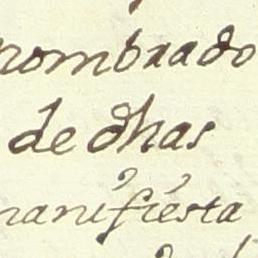 nombrado
de dhas
manifiesta